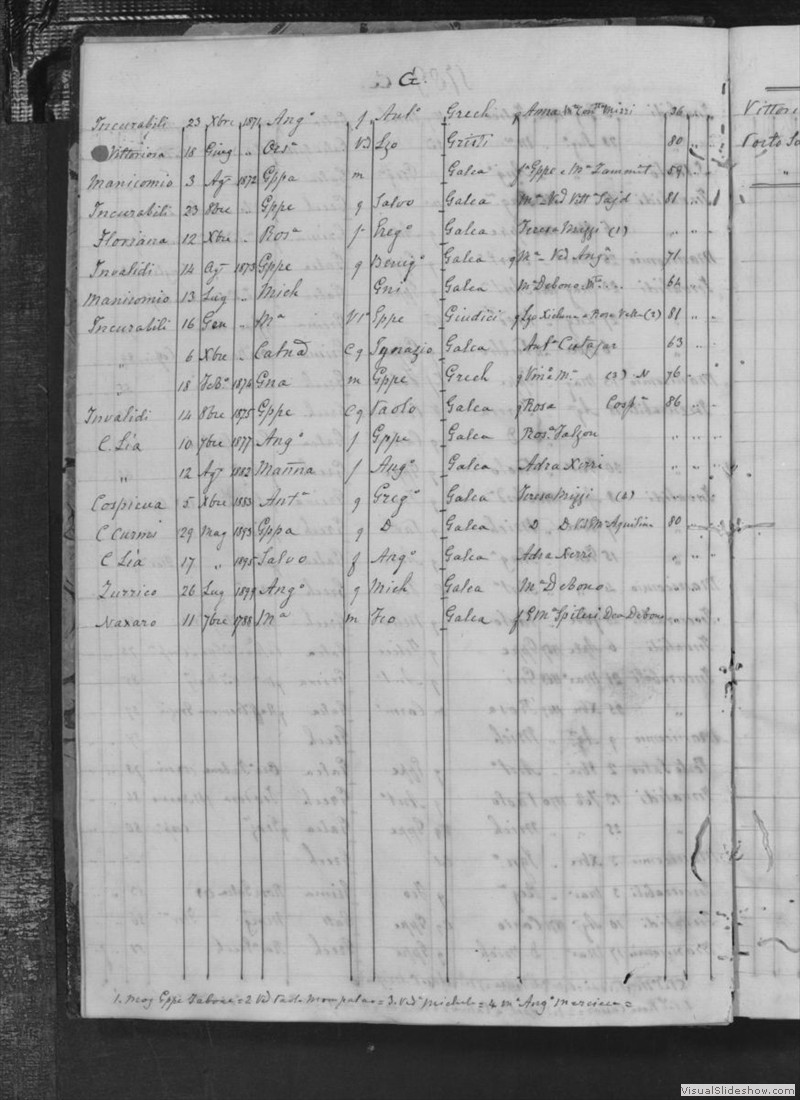 G.
Incurabili 23 Xbre 1871 Angº f Antº Grech Anna 36
Vittoriosa 18 Giug " Vd Lzo Gristi 80 "
Manicomio 3 Agt 1872 Gppa m Galea fª Gppe e Mª Zammit 59 "
Incurabili 23 8bre " Gppe g Salvo Galea Mª Ved Vittª Sajd 81 "
Floriana 12 Xbre " Rosª f Gregº Galea Teresa Mizzi (1) " "
Invalidi 14 Agt 1873 Gppe g Benigº Galea Mª Ved Angª 71 "
Manicomio 13 Lug " Mich Gni Galea Mª Debono 64 "
Incurabili 16 Gen " Mª Vª Gppe Giudici g Lzo Xicluna e Rosa Vella (2) 81 "
" 6 Xbre " Catnª C g Ignazio Galea Antª Cutajar 63 "
" 18 Febº 1874 Gna m Gppe Grech g Vinº Mª (3) N 76
Invalidi 14 8bre 1875 Gppe C g Paolo Galea g Rosa Cospª 86 "
C. Lia 10 7bre 1877 Angº f Gppe Galea Rosª Falzon " "
" 12 Agt 1882 Mañna f Angº Galea Adra Xerri " "
Cospicua 5 Xbre 1883 Antª g Gregº Galea Teresa Mizzi " "
C Curmi 29 Mag 1893 Gppa g D Galea D D 80
C Lia 17 " 1895 Salvo f Angº Galea Adra Xerri " "
Zurrico 26 Lug 1899 Angº g Mich Galea Mª Debono " "
Naxaro 11 7bre 1788 Mª m Fco Galea Mª Spiteri Debono " "
1. Mog Gppe = 2 Vd = 3. Vedª Michele = 4. Mª Angª =
Vittori
Porto Sa
"
VisualSlideshow.com